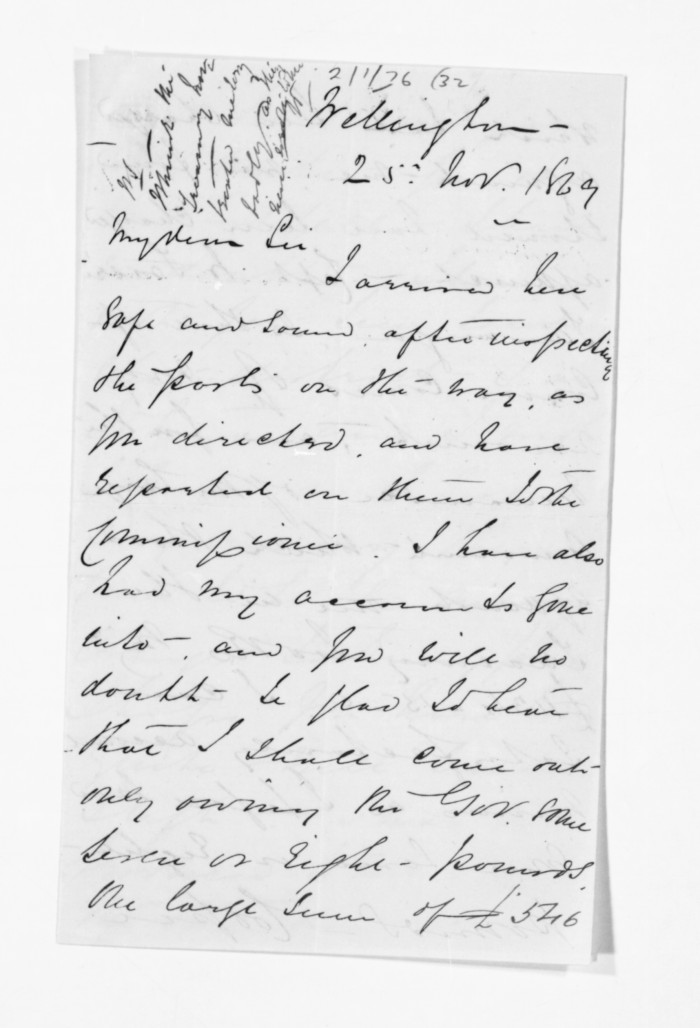 2/1/76 (32
Wellington -
25: Nov. 1869
My dear Sir
I arrived here
safe and sound, after inspecting
the posts on the way, as
you directed, and have
reported on them to the
Commissioner. I have also
had my accounts gone
into -, and you will no
doubt - be glad to hear
that I shall come out
only owing the Gov. some
seven or eight - pounds,
the large sum of £546